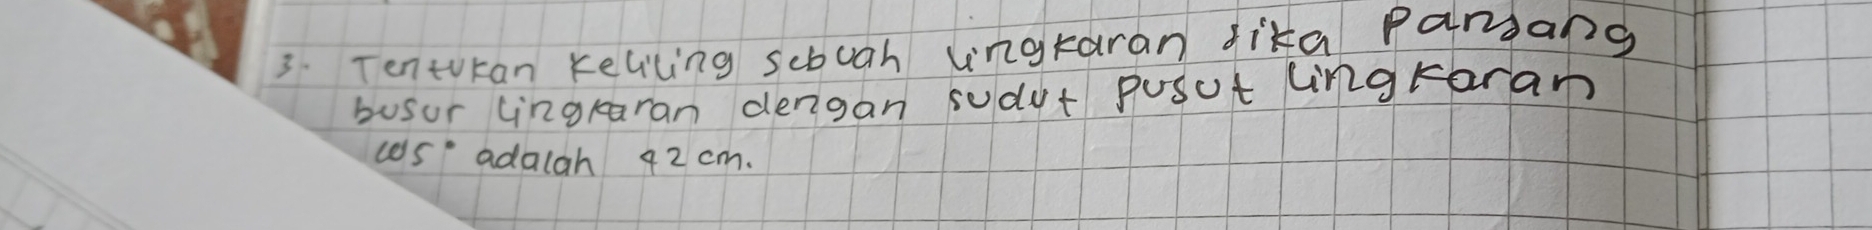 3. Tentukan keliling sebuah lingkaran jika panjang
busur lingkaran dengan sudut pusut lingkaran
105° adalah 42 cm.